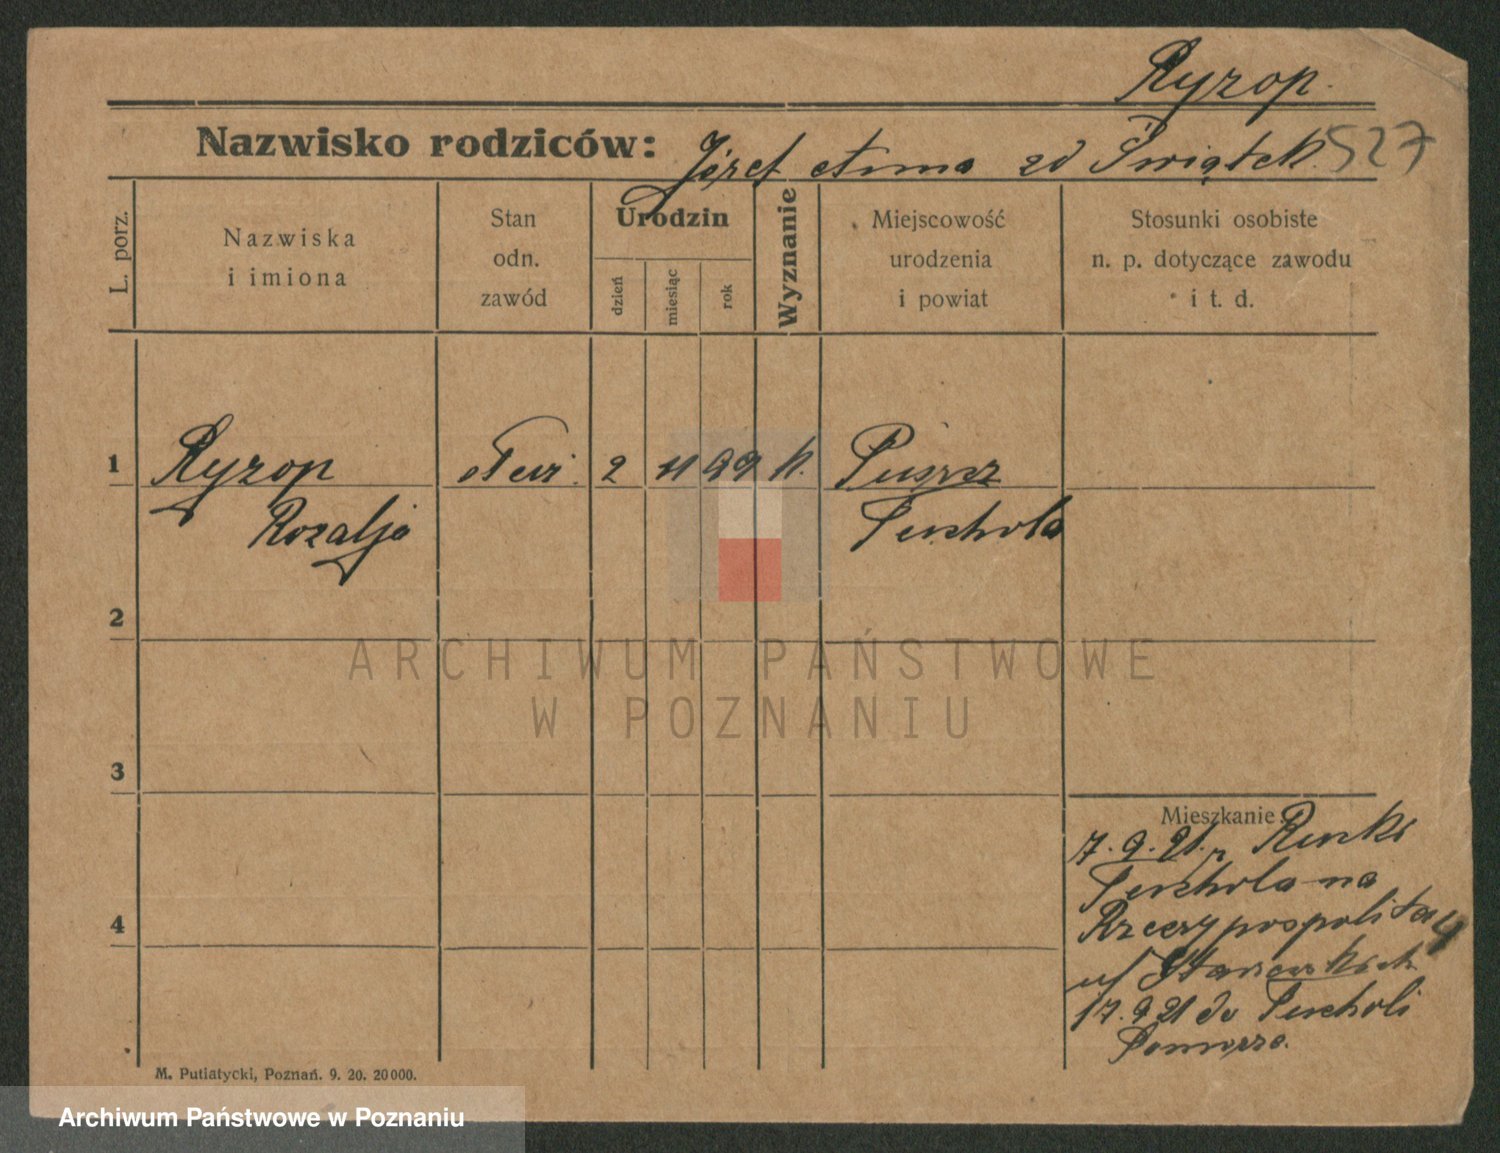 Ryzop.
Nazwisko rodziców: Józef Anna zd Świątek. 527
L. porz.
Nazwiska
i imiona
Stan
odn.
zawód
Urodzin
dzień
miesiąc
rok
Wyznanie
Miejscowość
urodzenia
i powiat
Stosunki osobiste
n. p. dotyczące zawodu
i t. d.
1 Ryzop 2 11 99 k.
Rozalja
2
3
Mieszkanie:
7.9.21.
na
Rzeczypospolitą
4
17.9.21 do
Pomorze.
M. Putiatycki, Poznań. 9. 20. 20000.
ARCHIWUM PAŃSTWOWE
W POZNANIU
Archiwum Państwowe w Poznaniu